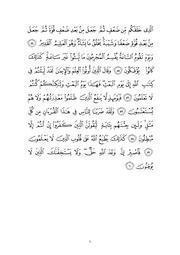 الَّذِى خَلَقَكُم مِّن ضَعْفٍ ثُمَّ جَعَلَ مِنۢ بَعْدِ ضَعْفٍ قُوَّةً ثُمَّ جَعَلَ
مِنۢ بَعْدِ قُوَّةٍ ضَعْفًا وَشَيْبَةً يَخْلُقُ مَا يَشَآءُ وَهُوَ الْعَلِيمُ الْقَدِيرُ
وَيَوْمَ تَقُومُ السَّاعَةُ يُقْسِمُ الْمُجْرِمُونَ مَا لَبِثُوا۟ غَيْرَ سَاعَةٍ كَذَٰلِكَ
كَانُوا۟ يُؤْفَكُونَ وَقَالَ الَّذِينَ أُوتُوا۟ الْعِلْمَ وَالْإِيمَٰنَ لَقَدْ لَبِثْتُمْ فِى
كِتَٰبِ اللَّهِ إِلَىٰ يَوْمِ الْبَعْثِ فَهَٰذَا يَوْمُ الْبَعْثِ وَلَٰكِنَّكُمْ كُنتُمْ
لَا تَعْلَمُونَ فَيَوْمَئِذٍ لَّا يَنفَعُ الَّذِينَ ظَلَمُوا۟ مَعْذِرَتُهُمْ وَلَا هُمْ
يُسْتَعْتَبُونَ وَلَقَدْ ضَرَبْنَا لِلنَّاسِ فِى هَٰذَا الْقُرْءَانِ مِن كُلِّ
مَثَلٍ وَلَئِن جِئْتَهُم بِـَٔايَةٍ لَّيَقُولَنَّ الَّذِينَ كَفَرُوٓا۟ إِنْ أَنتُمْ إِلَّا
مُبْطِلُونَ كَذَٰلِكَ يَطْبَعُ اللَّهُ عَلَىٰ قُلُوبِ الَّذِينَ لَا يَعْلَمُونَ
فَاصْبِرْ إِنَّ وَعْدَ اللَّهِ حَقٌّ وَلَا يَسْتَخِفَّنَّكَ الَّذِينَ لَا
يُوقِنُونَ